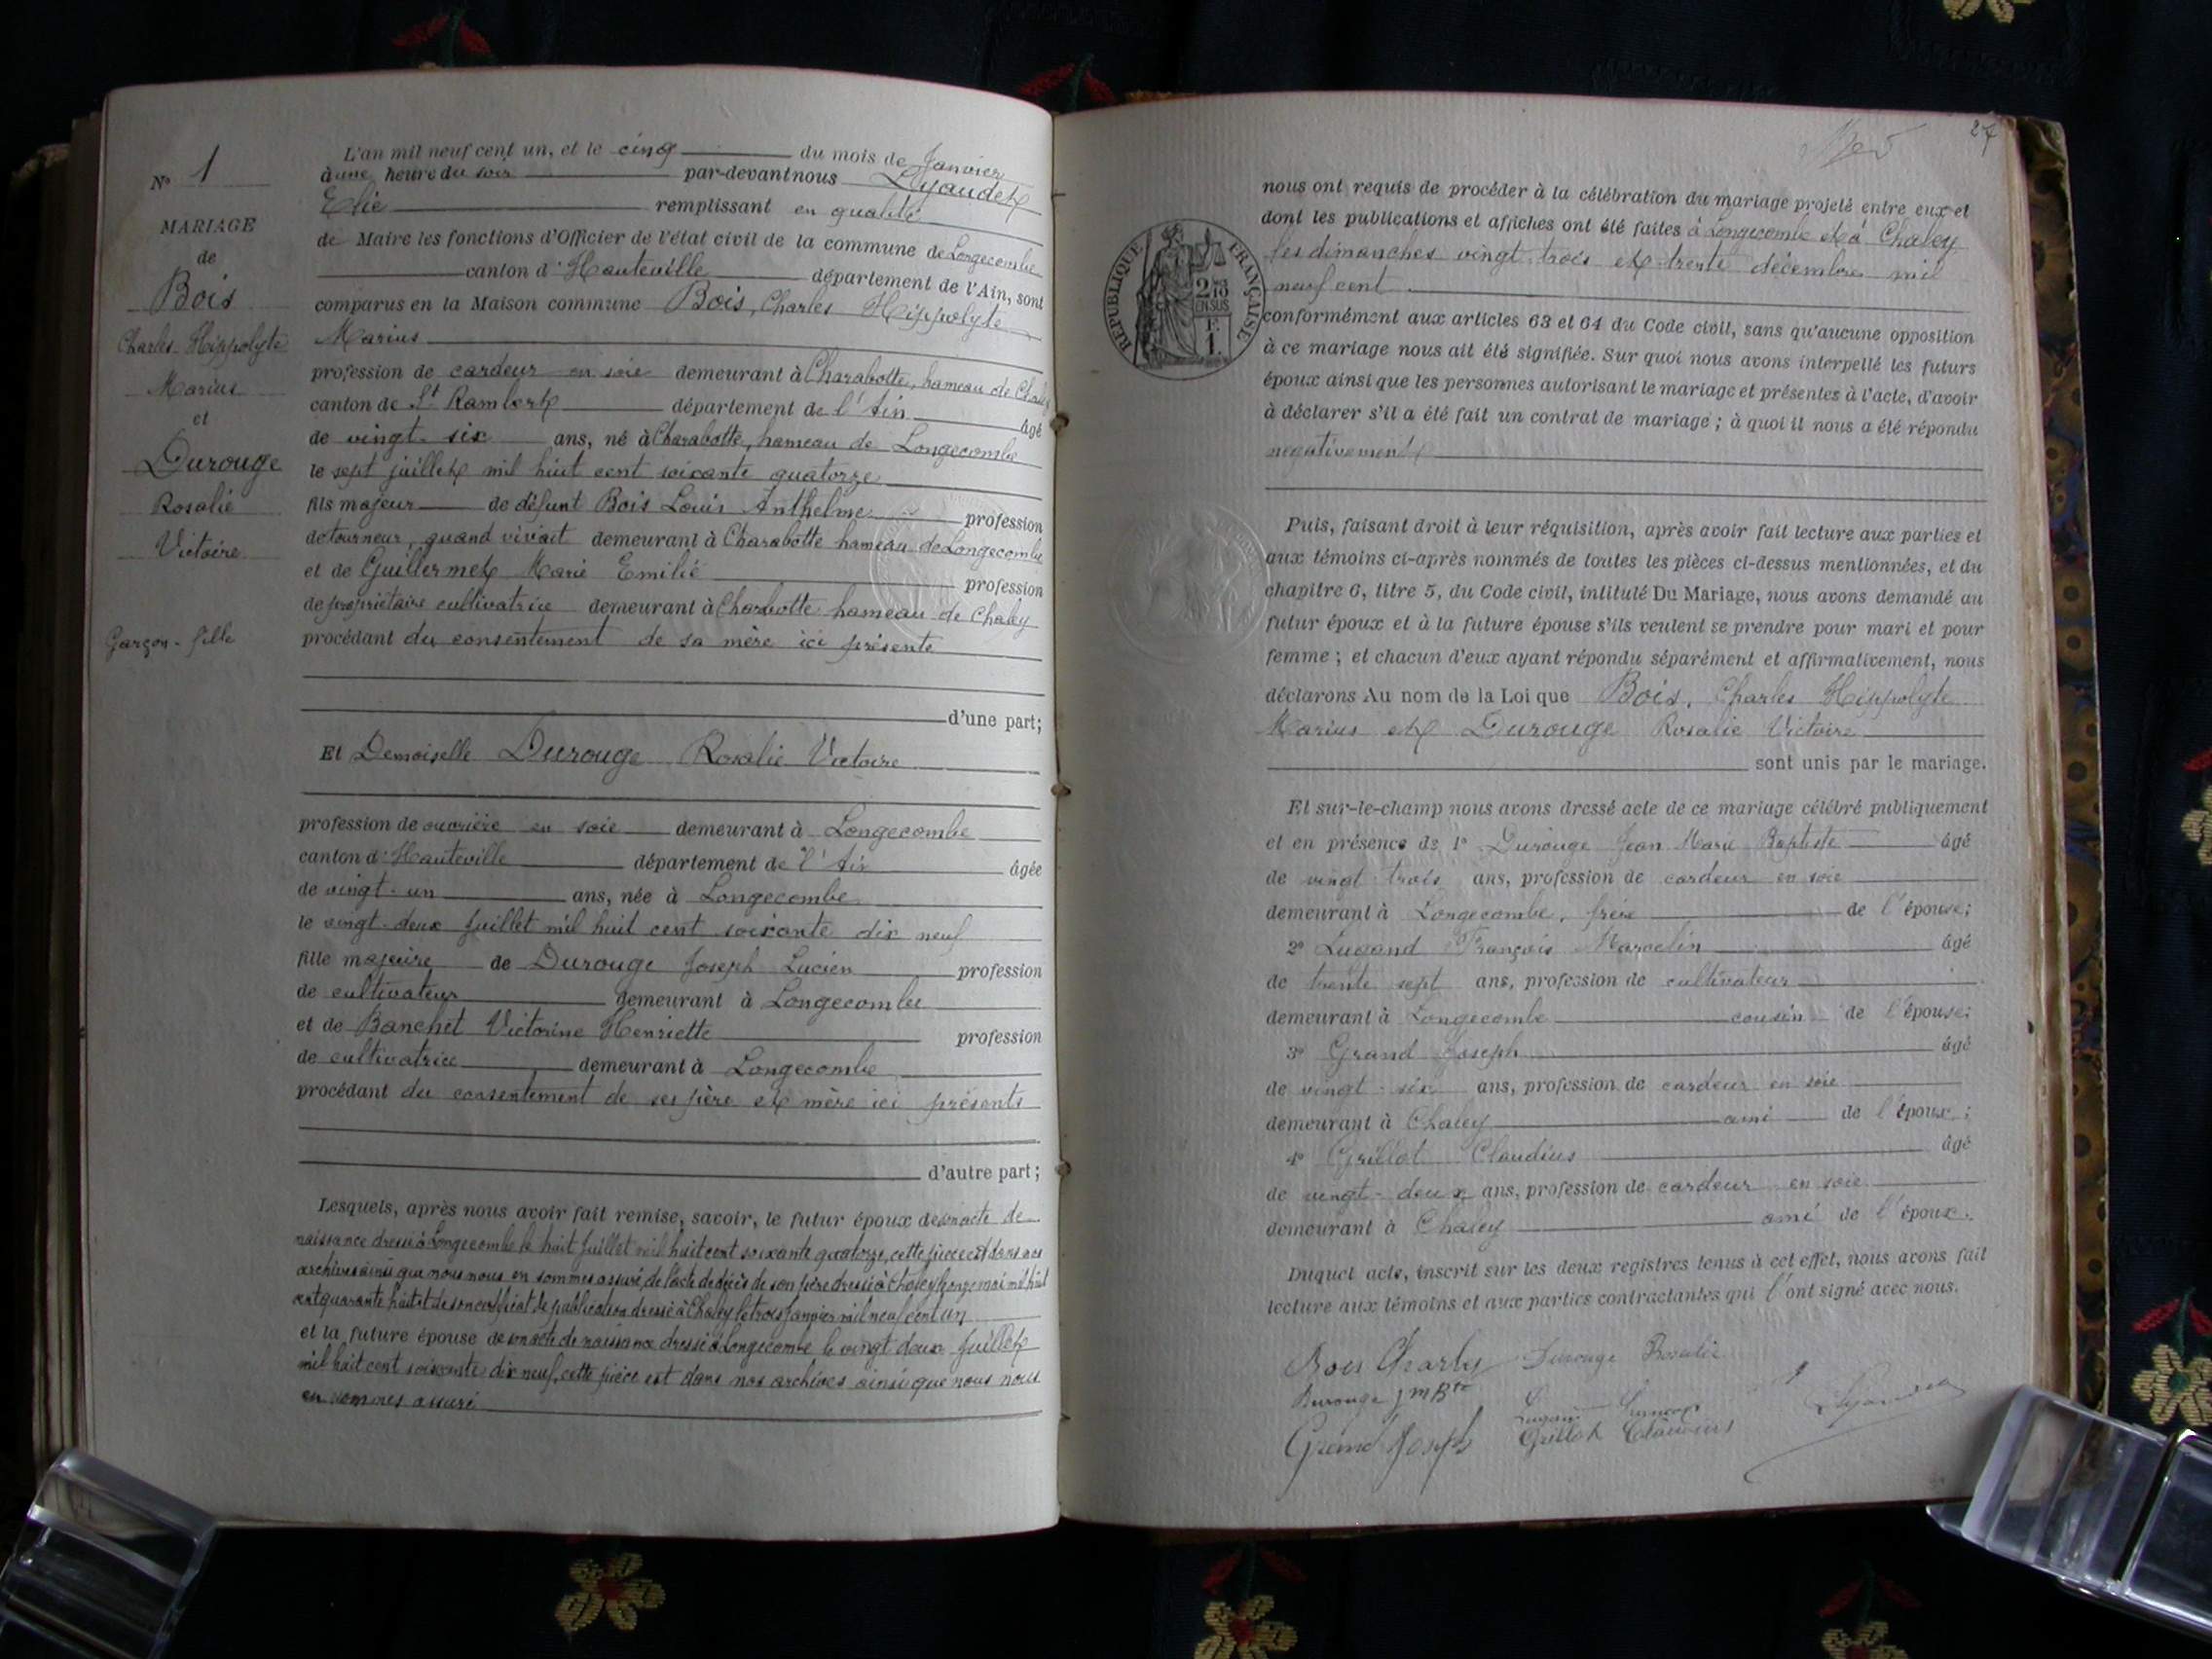 N° 1
MARIAGE
de
Bois
Charles Hippolyte
Marius
et
Durouge
Rosalie
Victoire
Garçon - fille
L'an mil neuf cent un, et le cinq du mois de Janvier
à une heure du soir par-devant nous Lyaudet
Elie remplissant en qualité
de Maire les fonctions d'Officier de l'état civil de la commune de Longecombe
canton d'Hauteville département de l'Ain, sont
comparus en la Maison commune Bois, Charles Hippolyte
Marius
profession de cardeur en soie demeurant à Charabotte, hameau de Chaley
canton de St Rambert département de l'Ain âgé
de vingt-six ans, né à Charabotte, hameau de Longecombe
le sept juillet mil huit cent soixante quatorze
fils majeur de défunt Bois Louis Anthelme profession
de tourneur, quand vivait demeurant à Charabotte hameau de Longecombe
et de Guillermet Marie Emilie profession
de propriétaire cultivatrice demeurant à Charbotte hameau de Chaley
procédant du consentement de sa mère ici présente
d'une part;
Et Demoiselle Durouge Rosalie Victoire
profession de ouvrière en soie demeurant à Longecombe
canton d'Hauteville département de l'Ain âgée
de vingt-un ans, née à Longecombe
le vingt-deux Juillet mil huit cent soixante dix neuf
fille majeure de Durouge Joseph Lucien profession
de cultivateur demeurant à Longecombe
et de Banchet Victorine Henriette profession
de cultivatrice demeurant à Longecombe
procédant du consentement de ses père et mère ici présents
d'autre part;
Lesquels, après nous avoir fait remise, savoir, le futur époux de son acte de
naissance dressé à Longecombe le huit Juillet mil huit cent soixante quatorze, cette pièce est dans nos
archives ainsi que nous nous en sommes assuré, de l'acte de décès de son père dressé à Chaley le onze mai mil huit
cent quarante huit et de son certificat de publication dressé à Chaley le trois Janvier mil neuf cent un
et la future épouse de son acte de naissance dressé à Longecombe le vingt deux Juillet
mil huit cent soixante dix neuf, cette pièce est dans nos archives ainsi que nous nous
en sommes assuré
27
RÉPUBLIQUE FRANÇAISE
2/10
EN SUS
F.
1.
nous ont requis de procéder à la célébration du mariage projeté entre eux et
dont les publications et affiches ont été faites à Longecombe et à Chaley
les dimanches vingt-trois et trente décembre mil
neuf cent
conformément aux articles 63 et 64 du Code civil, sans qu'aucune opposition
à ce mariage nous ait été signifiée. Sur quoi nous avons interpellé les futurs
époux ainsi que les personnes autorisant le mariage et présentes à l'acte, d'avoir
à déclarer s'il a été fait un contrat de mariage; à quoi il nous a été répondu
négativement
Puis, faisant droit à leur réquisition, après avoir fait lecture aux parties et
aux témoins ci-après nommés de toutes les pièces ci-dessus mentionnées, et du
chapitre 6, titre 5, du Code civil, intitulé Du Mariage, nous avons demandé au
futur époux et à la future épouse s'ils veulent se prendre pour mari et pour
femme; et chacun d'eux ayant répondu séparément et affirmativement, nous
déclarons Au nom de la Loi que Bois, Charles Hippolyte
Marius et Durouge Rosalie Victoire
sont unis par le mariage.
Et sur-le-champ nous avons dressé acte de ce mariage célébré publiquement
et en présence de 1° Durouge Jean Marie Baptiste âgé
de vingt trois ans, profession de cardeur en soie
demeurant à Longecombe, frère de l'épouse;
2° Lugand François Marcelin âgé
de trente sept ans, profession de cultivateur
demeurant à Longecombe cousin de l'épouse;
3° Grand Joseph âgé
de vingt-six ans, profession de cardeur en soie
demeurant à Chaley ami de l'époux;
4° Grillot Claudius âgé
de vingt-deux ans, profession de cardeur en soie
demeurant à Chaley ami de l'époux.
Duquel acte, inscrit sur les deux registres tenus à cet effet, nous avons fait
lecture aux témoins et aux parties contractantes qui l'ont signé avec nous.
Bois Charles Durouge Rosalie
Durouge J M Bte
Lugand François Lyaudet
Grand Joseph Grillot Claudius